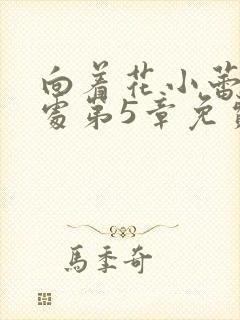 向着花小蕾
处第5章免费
馬季奇